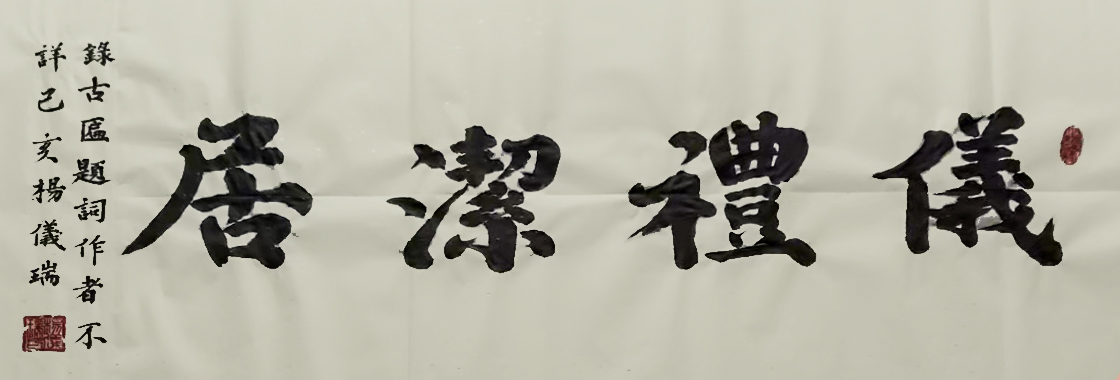 儀禮潔居
錄古匾題詞作者不
詳己亥楊儀瑞